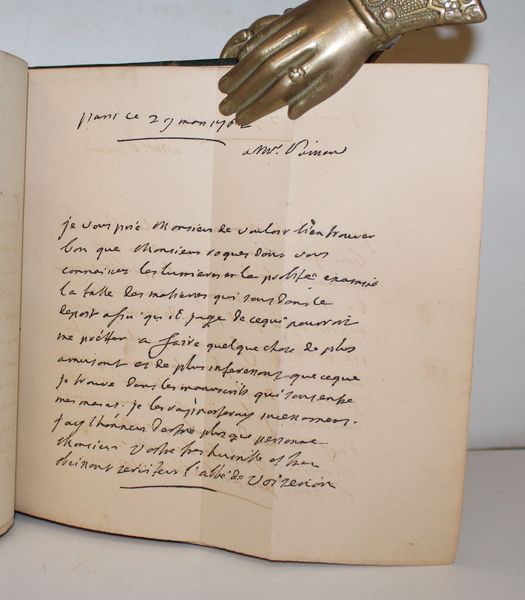 paris ce 29 mars 176
a Mr.
je vous prie Monsieur de vouloir bien trouver
bon que Monsieur roques dont vous
connoisses les lumieres et la probité examine
la table des matieres qui sont dans le
depost afin qu'il juge de ce qui pourroit
me prêtter a faire quelque chose de plus
amusant et de plus interessant que ce que
je trouve dans les manuscrits qui sont entre
mes mains. je les raporteray incessament.
j'ay l'honneur d'estre plus que personne
Monsieur Vostre tres humble et tres
obeissant serviteur l'abbé de Voisenon